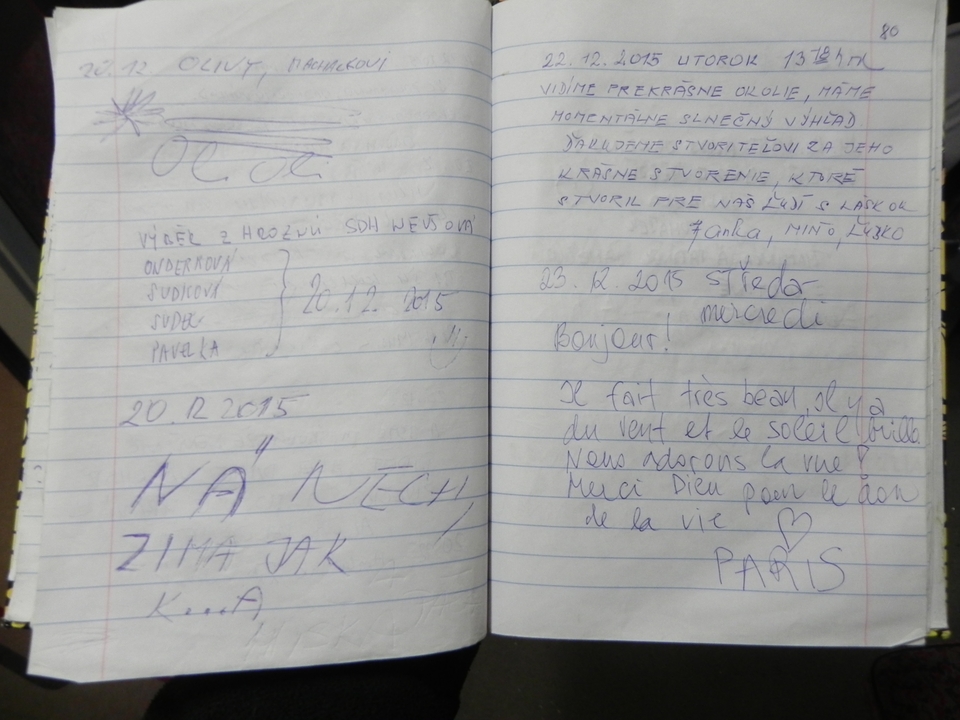 20.12 OLIVY, MACHALKOVI
VÝBĚR Z HROZNŮ SDH NEVŠOVÁ
ONDERKOVÁ
SUDKOVÁ
SUDEK
PAVELKA
20.12. 2015
20.12 2015
NÁ NECH,
ZIMA JAK
K....A
80
22.12.2015 UTOROK 13
VIDÍME PREKRÁSNE OKOLIE, MÁME
MOMENTÁLNE SLNEČNÝ VÝHĽAD
ĎAKUJEME STVORITEĽOVI ZA JEHO
KRÁSNE STVORENIE, KTORÉ
STVORIL PRE NÁS ĽUDÍ S LÁSKOU
Janka, MIŇO, ĽUBKO
23.12.2015 STředa
mercredi
Bonjour!
Il fait très beau, il y a
du vent et le soleil brille.
Nous adorons la vue!
Merci Dieu pour le don
de la vie
PARIS